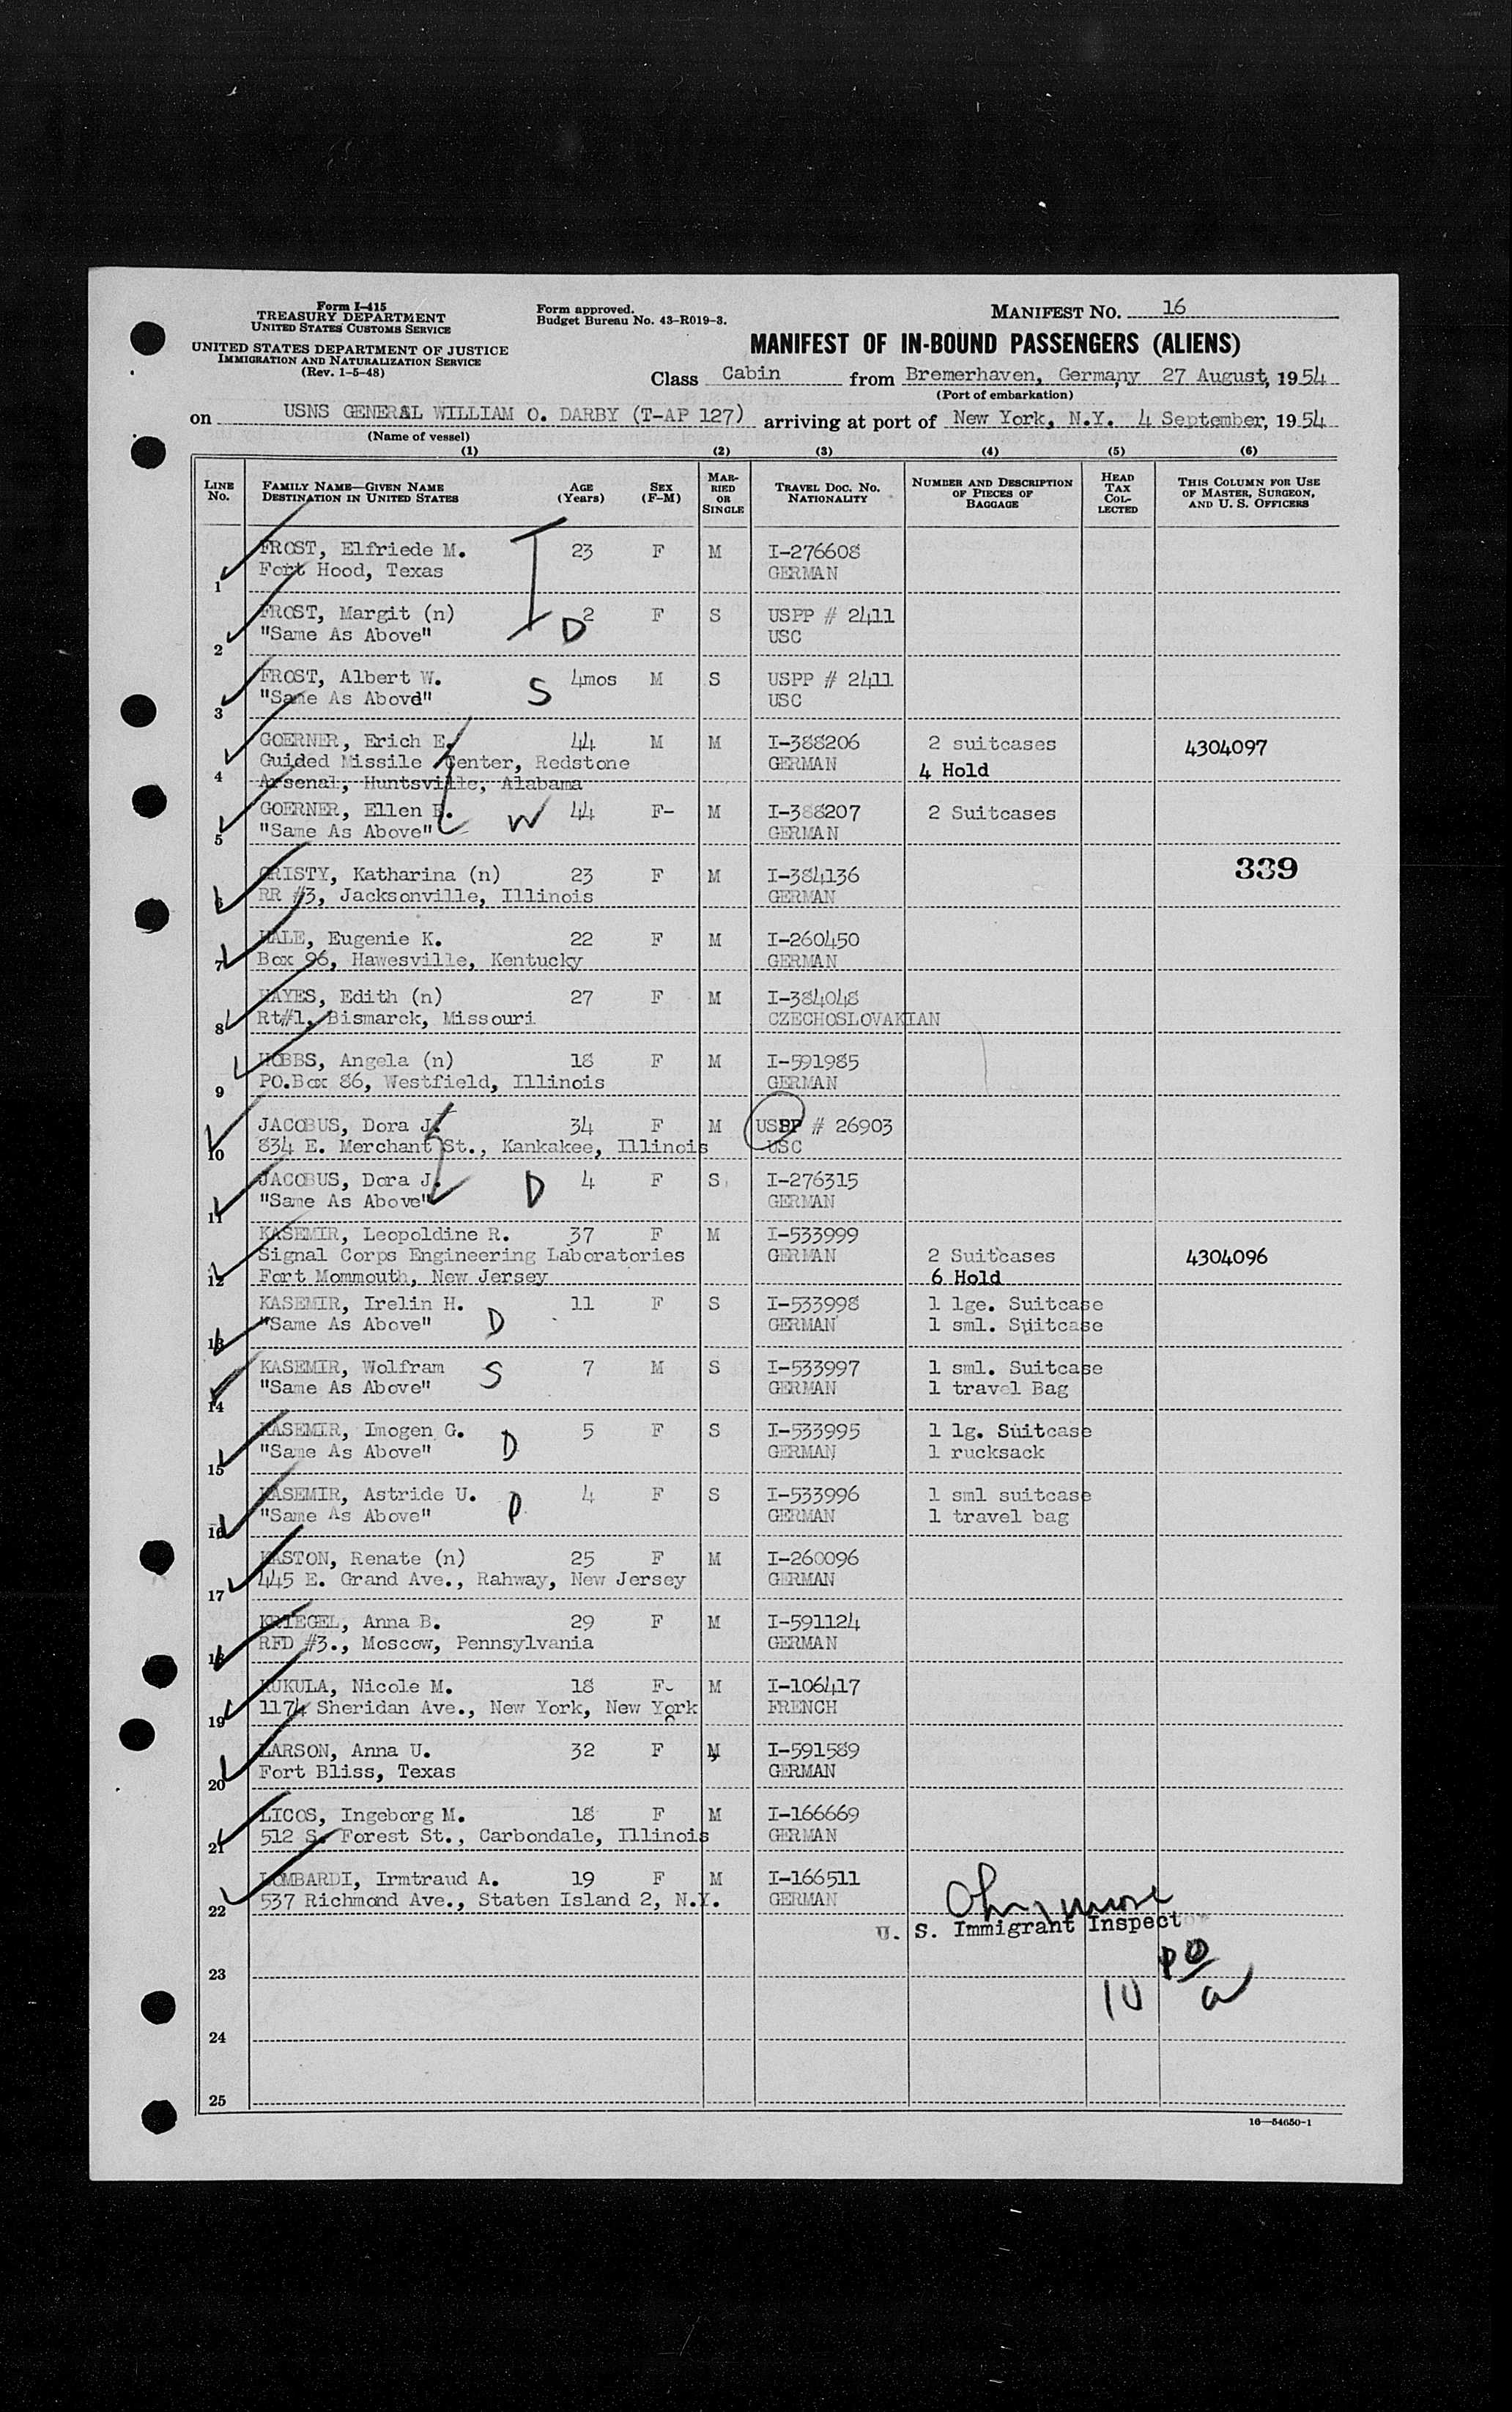 Form I-415
TREASURY DEPARTMENT
UNITED STATES CUSTOMS SERVICE
UNITED STATES DEPARTMENT OF JUSTICE
IMMIGRATION AND NATURALIZATION SERVICE
(Rev. 1-5-48)
Form approved.
Budget Bureau No. 43-R019-3.
MANIFEST No. 16
MANIFEST OF IN-BOUND PASSENGERS (ALIENS)
Class Cabin from Bremerhaven, Germany 27 August, 1954
(Port of embarkation)
on USNS GENERAL WILLIAM O. DARBY (T-AP 127) arriving at port of New York, N.Y. 4 September, 1954
(Name of vessel)
(1) (2) (3) (4) (5) (6)
LINE No. FAMILY NAME—GIVEN NAME DESTINATION IN UNITED STATES AGE (Years) SEX (F-M) MARRIED OR SINGLE TRAVEL DOC. NO. NATIONALITY NUMBER AND DESCRIPTION OF PIECES OF BAGGAGE HEAD TAX COLLECTED THIS COLUMN FOR USE OF MASTER, SURGEON, AND U. S. OFFICERS
1 FROST, Elfriede M. 23 F M I-276608
Fort Hood, Texas GERMAN
2 FROST, Margit (n) D 2 F S USPP # 2411
"Same As Above" USC
3 FROST, Albert W. S 4mos M S USPP # 2411
"Same As Abovd" USC
4 GOERNER, Erich E. 44 M M I-388206 2 suitcases 4304097
Guided Missile Center, Redstone GERMAN 4 Hold
Arsenal, Huntsville, Alabama
5 GOERNER, Ellen W 44 F- M I-388207 2 Suitcases
"Same As Above" GERMAN
339
6 CRISTY, Katharina (n) 23 F M I-384136
RR #3, Jacksonville, Illinois GERMAN
7 HALE, Eugenie K. 22 F M I-260450
Box 96, Hawesville, Kentucky GERMAN
8 HAYES, Edith (n) 27 F M I-384048
Rt#1, Bismarck, Missouri CZECHOSLOVAKIAN
9 HOBBS, Angela (n) 18 F M I-591985
PO.Box 86, Westfield, Illinois GERMAN
10 JACOBUS, Dora J. 34 F M USPP # 26903
834 E. Merchant St., Kankakee, Illinois USC
11 JACOBUS, Dora J. D 4 F S I-276315
"Same As Above" GERMAN
12 KASEMIR, Leopoldine R. 37 F M I-533999
Signal Corps Engineering Laboratories GERMAN 2 Suitcases 4304096
Fort Mommouth, New Jersey 6 Hold
13 KASEMIR, Irelin H. D 11 F S I-533998 1 lge. Suitcase
"Same As Above" GERMAN 1 sml. Suitcase
14 KASEMIR, Wolfram S 7 M S I-533997 1 sml. Suitcase
"Same As Above" GERMAN 1 travel Bag
15 KASEMIR, Imogen G. D 5 F S I-533995 1 lg. Suitcase
"Same As Above" GERMAN 1 rucksack
16 KASEMIR, Astride U. D 4 F S I-533996 1 sml suitcase
"Same As Above" GERMAN 1 travel bag
17 KASTON, Renate (n) 25 F M I-260096
445 E. Grand Ave., Rahway, New Jersey GERMAN
18 KRIEGEL, Anna B. 29 F M I-591124
RFD #3., Moscow, Pennsylvania GERMAN
19 KUKULA, Nicole M. 18 F M I-106417
1174 Sheridan Ave., New York, New York FRENCH
20 LARSON, Anna U. 32 F M I-591589
Fort Bliss, Texas GERMAN
21 LICOS, Ingeborg M. 18 F M I-166669
512 S. Forest St., Carbondale, Illinois GERMAN
22 LOMBARDI, Irmtraud A. 19 F M I-166511
537 Richmond Ave., Staten Island 2, N.Y. GERMAN
U. S. Immigrant Inspector
23
24
25
16—54650-1